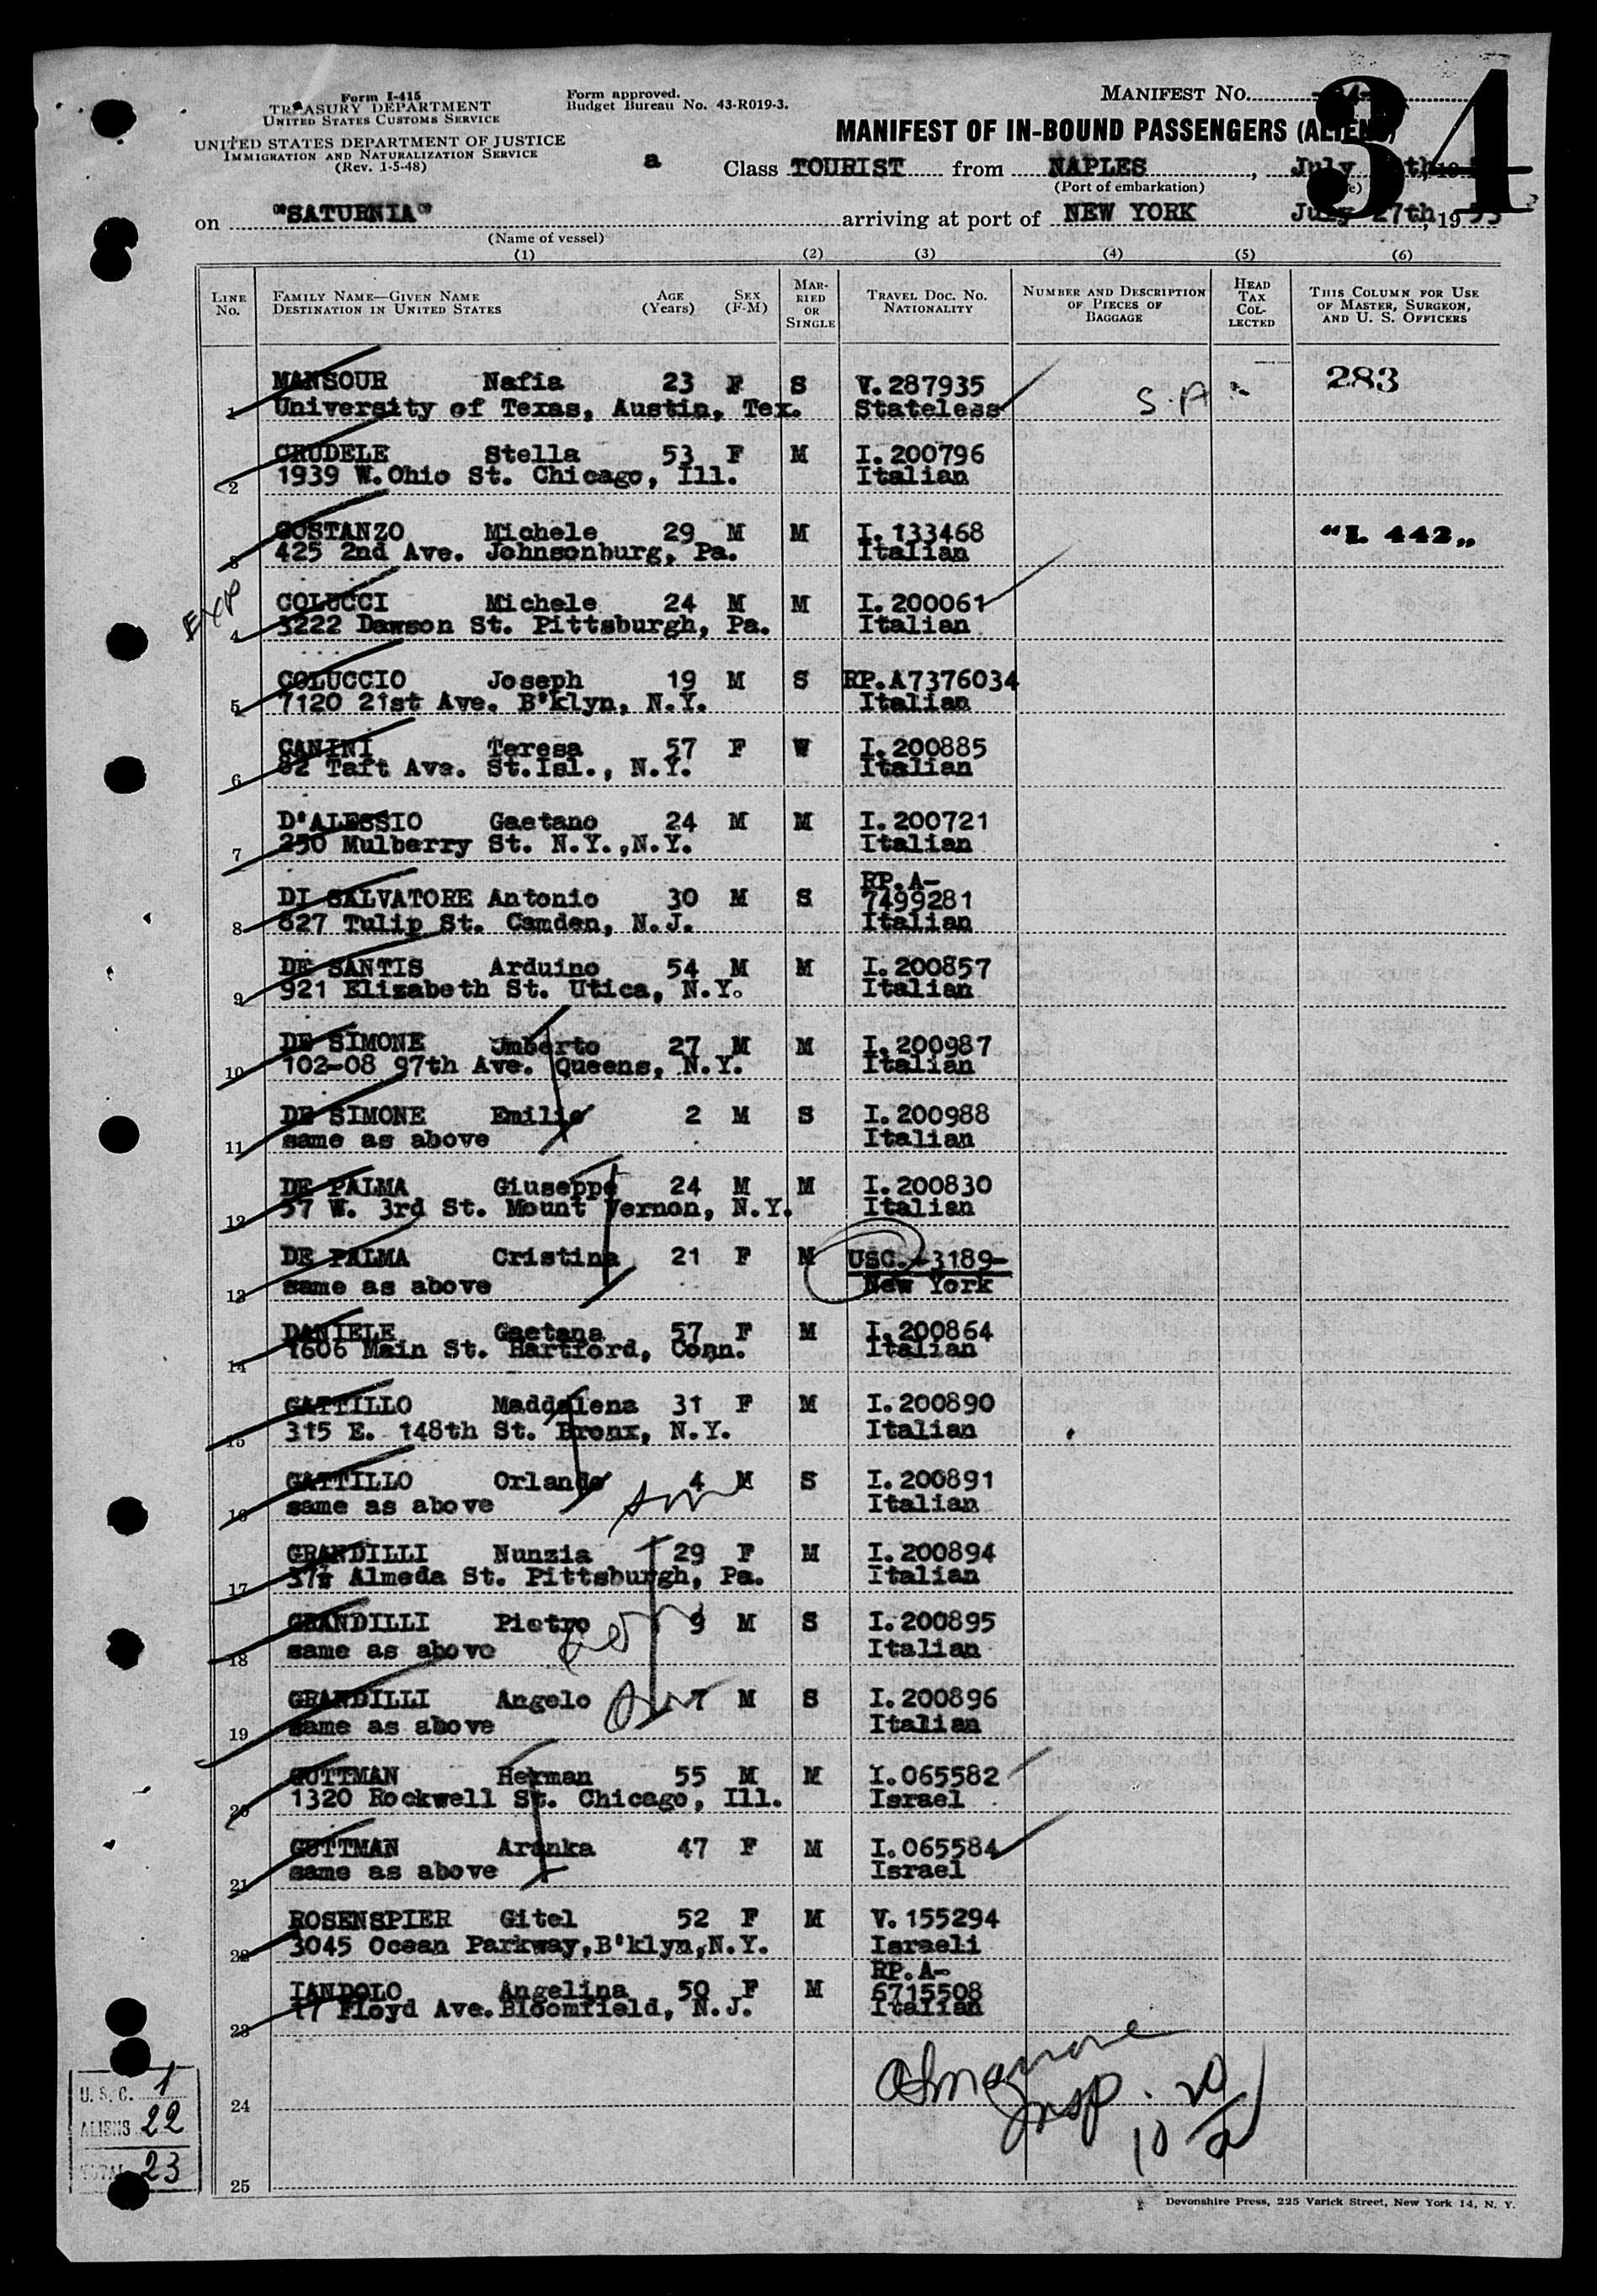 Form I-415
TREASURY DEPARTMENT
UNITED STATES CUSTOMS SERVICE
UNITED STATES DEPARTMENT OF JUSTICE
IMMIGRATION AND NATURALIZATION SERVICE
(Rev. 1-5-48)
Form approved.
Budget Bureau No. 43-R019-3.
MANIFEST NO.
34
MANIFEST OF IN-BOUND PASSENGERS (ALIENS)
a Class TOURIST from NAPLES, July th, 19
(Port of embarkation)
on "SATURNIA" arriving at port of NEW YORK July 27th, 1953
(Name of vessel)
(1) (2) (3) (4) (5) (6)
LINE No.
FAMILY NAME—GIVEN NAME
DESTINATION IN UNITED STATES
AGE (Years)
SEX (F-M)
MARRIED OR SINGLE
TRAVEL DOC. NO.
NATIONALITY
NUMBER AND DESCRIPTION OF PIECES OF BAGGAGE
HEAD TAX COLLECTED
THIS COLUMN FOR USE OF MASTER, SURGEON, AND U. S. OFFICERS
MANSOUR Nafia 23 F S V.287935 283
1 University of Texas, Austin, Tex. Stateless S.A
CRUDELE Stella 53 F M I.200796
2 1939 W.Ohio St. Chicago, Ill. Italian
COSTANZO Michele 29 M M I.133468 "L 442"
3 425 2nd Ave. Johnsonburg, Pa. Italian
EXP
COLUCCI Michele 24 M M I.200061
4 3222 Dawson St. Pittsburgh, Pa. Italian
COLUCCIO Joseph 19 M S RP.A7376034
5 7120 21st Ave. B'klyn, N.Y. Italian
CANINI Teresa 57 F W I.200885
6 82 Taft Ave. St.Isl., N.Y. Italian
D'ALESSIO Gaetano 24 M M I.200721
7 250 Mulberry St. N.Y.,N.Y. Italian
DI SALVATORE Antonio 30 M S RP.A-7499281
8 827 Tulip St. Camden, N.J. Italian
DE SANTIS Arduino 54 M M I.200857
9 921 Elizabeth St. Utica, N.Y. Italian
DE SIMONE Umberto 27 M M I.200987
10 102-08 97th Ave. Queens, N.Y. Italian
DE SIMONE Emilio 2 M S I.200988
11 same as above Italian
DE PALMA Giuseppe 24 M M I.200830
12 37 W. 3rd St. Mount Vernon, N.Y. Italian
DE PALMA Cristina 21 F M USC.-3189-
13 same as above New York
DANIELE Gaetana 57 F M I.200864
14 1606 Main St. Hartford, Conn. Italian
GATTILLO Maddalena 31 F M I.200890
15 315 E. 148th St. Bronx, N.Y. Italian
GATTILLO Orlando 4 M S I.200891
16 same as above Italian
GRANDILLI Nunzia 29 F M I.200894
17 37½ Almeda St. Pittsburgh, Pa. Italian
GRANDILLI Pietro 9 M S I.200895
18 same as above Italian
GRANDILLI Angelo 7 M S I.200896
19 same as above Italian
GUTTMAN Herman 55 M M I.065582
20 1320 Rockwell St. Chicago, Ill. Israel
GUTTMAN Aranka 47 F M I.065584
21 same as above Israel
ROSENSPIER Gitel 52 F M V.155294
22 3045 Ocean Parkway,B'klyn,N.Y. Israeli
IANDOLO Angelina 50 F M RP.A-6715508
23 17 Floyd Ave.Bloomfield, N.J. Italian
24
Insp.
10
25
U. S. C. 1
ALIENS 22
TOTAL 23
Devonshire Press, 225 Varick Street, New York 14, N. Y.